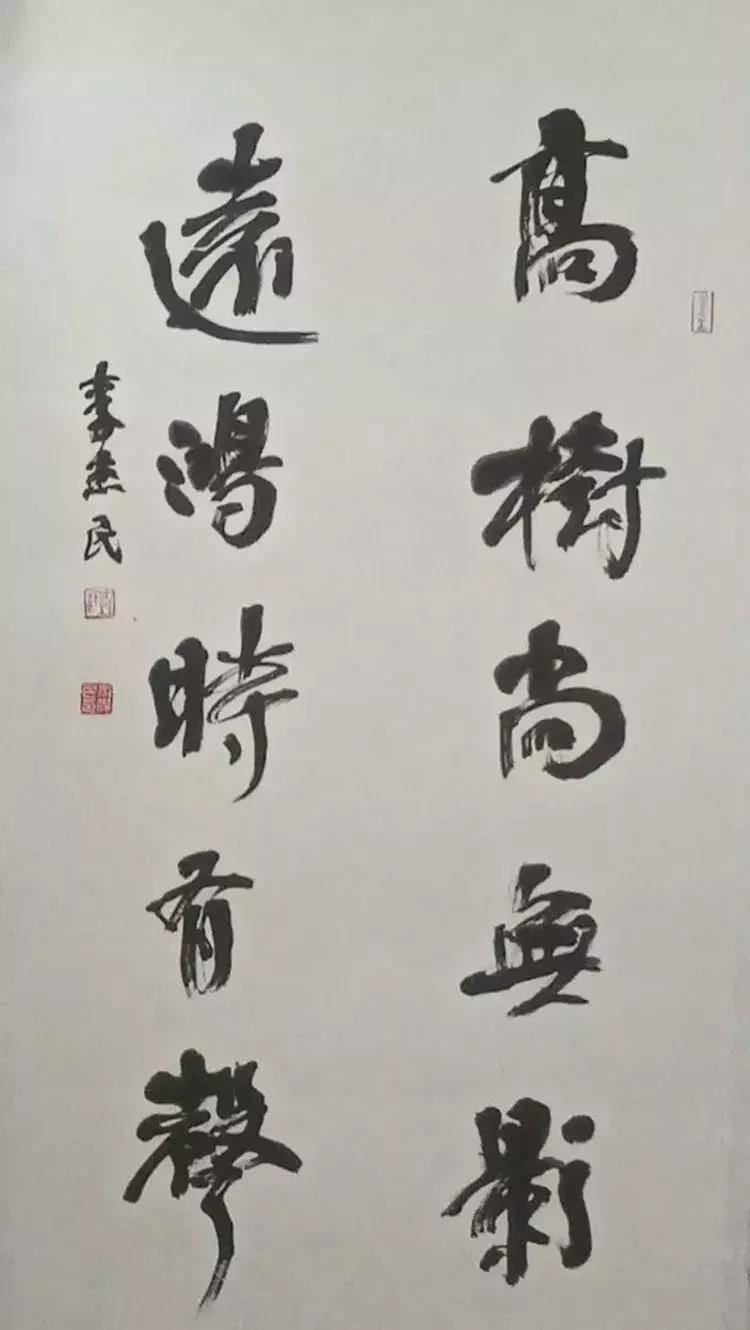 高樹尚無影
遠鴻時有聲
李惠民